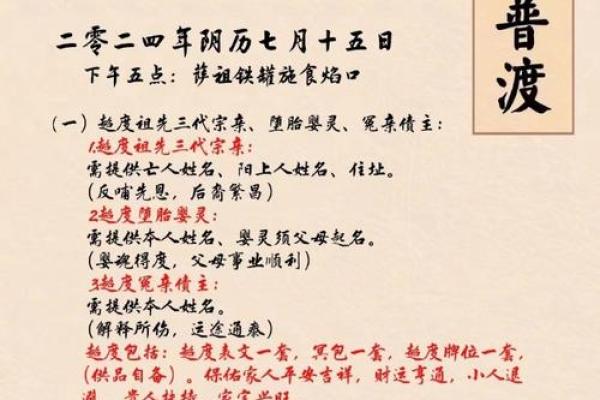 普渡
二零二四年阴历七月十五日
下午五点：萨祖铁罐施食焰口
(一)超度祖先三代宗亲、堕胎婴灵、冤亲债主：
1.超度祖先三代宗亲：
需提供亡人姓名、阳上人姓名、住址。
(反哺先恩，后裔繁昌)
2超度堕胎婴灵：
需提供本人姓名、婴灵须父母起名。
(婴魂得度，父母事业顺利)
3超度冤亲债主：
需提供本人姓名。
(解释所伤，运途通泰)
超度包括：超度表文一套，冥包一套，超度牌位一套，
(供品自备)。保佑家人平安吉祥，财运亨通，小人退
避，贵人扶持，家宅兴旺